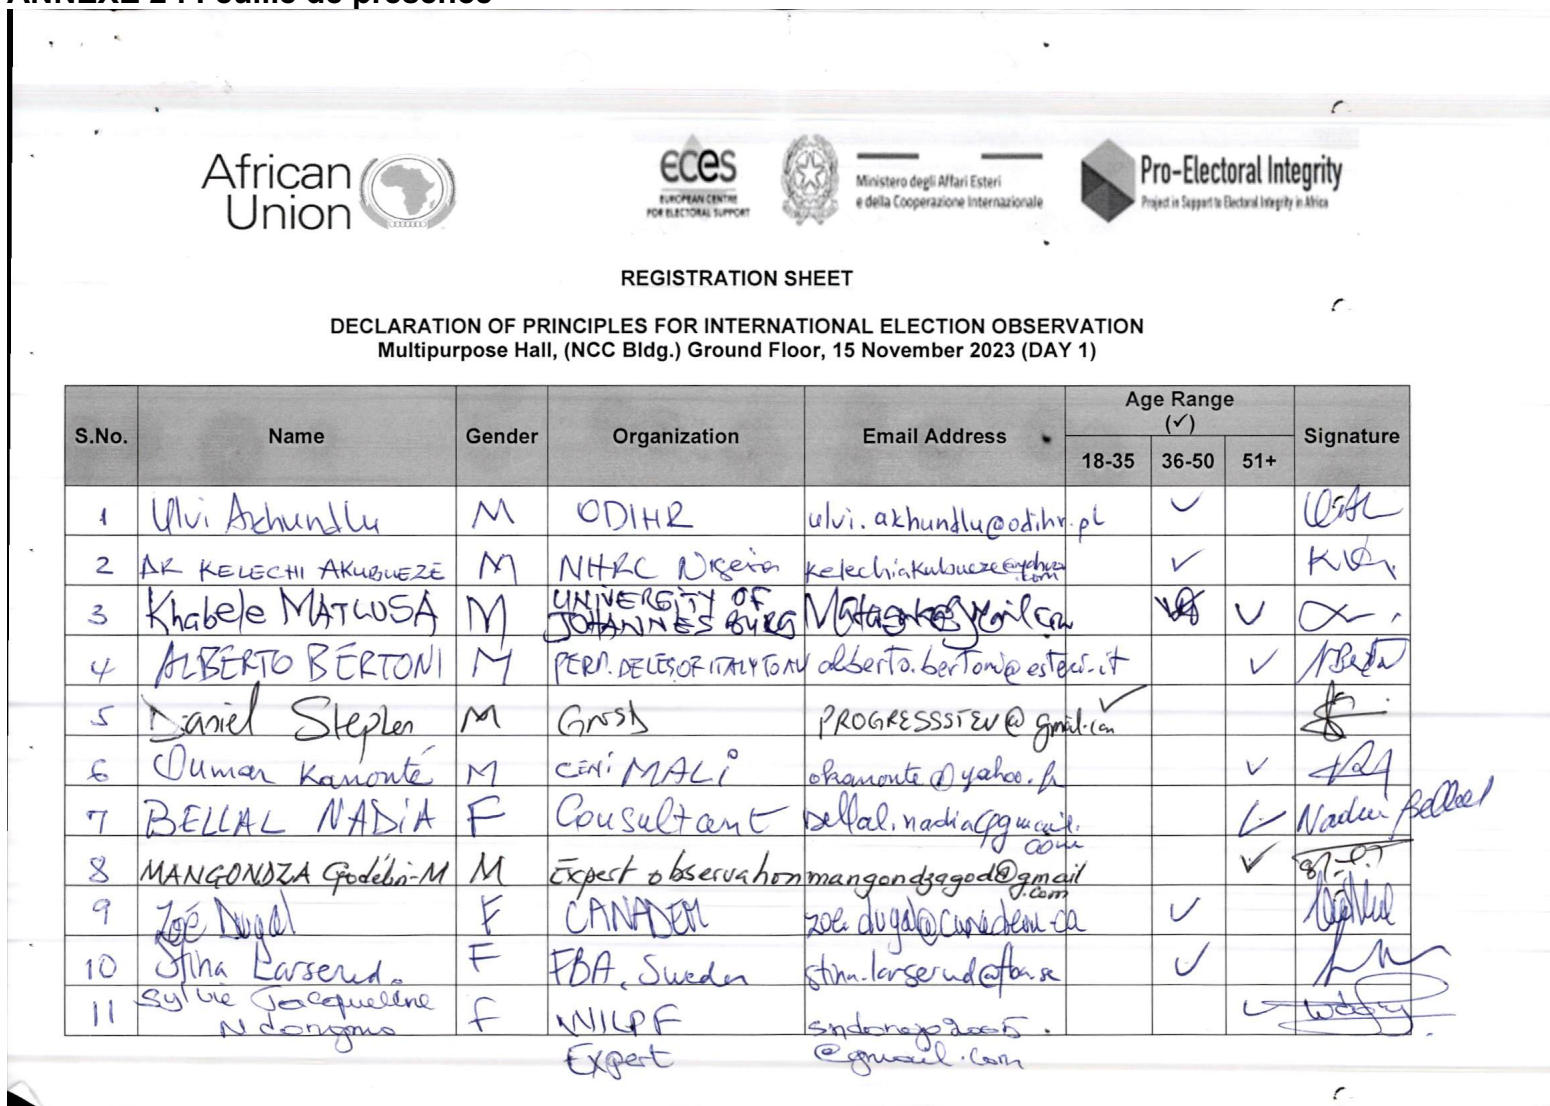 ANNEXE 2 : Feuille de présence
African
Union
eces
EUROPEAN CENTRE
FOR ELECTORAL SUPPORT
Ministero degli Affari Esteri
e della Cooperazione Internazionale
Pro-Electoral Integrity
Project in Support to Electoral Integrity in Africa
REGISTRATION SHEET
DECLARATION OF PRINCIPLES FOR INTERNATIONAL ELECTION OBSERVATION
Multipurpose Hall, (NCC Bldg.) Ground Floor, 15 November 2023 (DAY 1)
S.No. Name Gender Organization Email Address Age Range (✓) 18-35 36-50 51+ Signature
1 Ulvi Akhundlu M ODIHR ulvi.akhundlu@odihr.pl ✓
2 AR KELECHI AKUBUEZE M NHRC Nigeria kelechiakubueze@yahoo.com ✓
3 Khabele MATLOSA M UNIVERSITY OF JOHANNESBURG ✓
4 ALBERTO BERTONI M PERM. DELEG OF ITALY TO AU alberto.bertoni@esteri.it ✓
5 Daniel Stephen M GNSD PROGRESSSTEV@gmail.com ✓
6 Oumar Kanouté M CENI MALI okanoute@yahoo.fr ✓
7 BELLAL NADiA F Consultant bellal.nadia@gmail.com ✓ Nadia Bellal
8 MANGONDZA Godébn-M M Expert observation mangondzagod@gmail.com ✓
9 Zoé Dugal F CANADEM zoe.dugal@canadem.ca ✓
10 Stina Larserud. F FBA, Sweden stina.larserud@fba.se ✓
11 Sylvie Jacqueline Ndongmo F WILPF Expert @gmail.com ✓